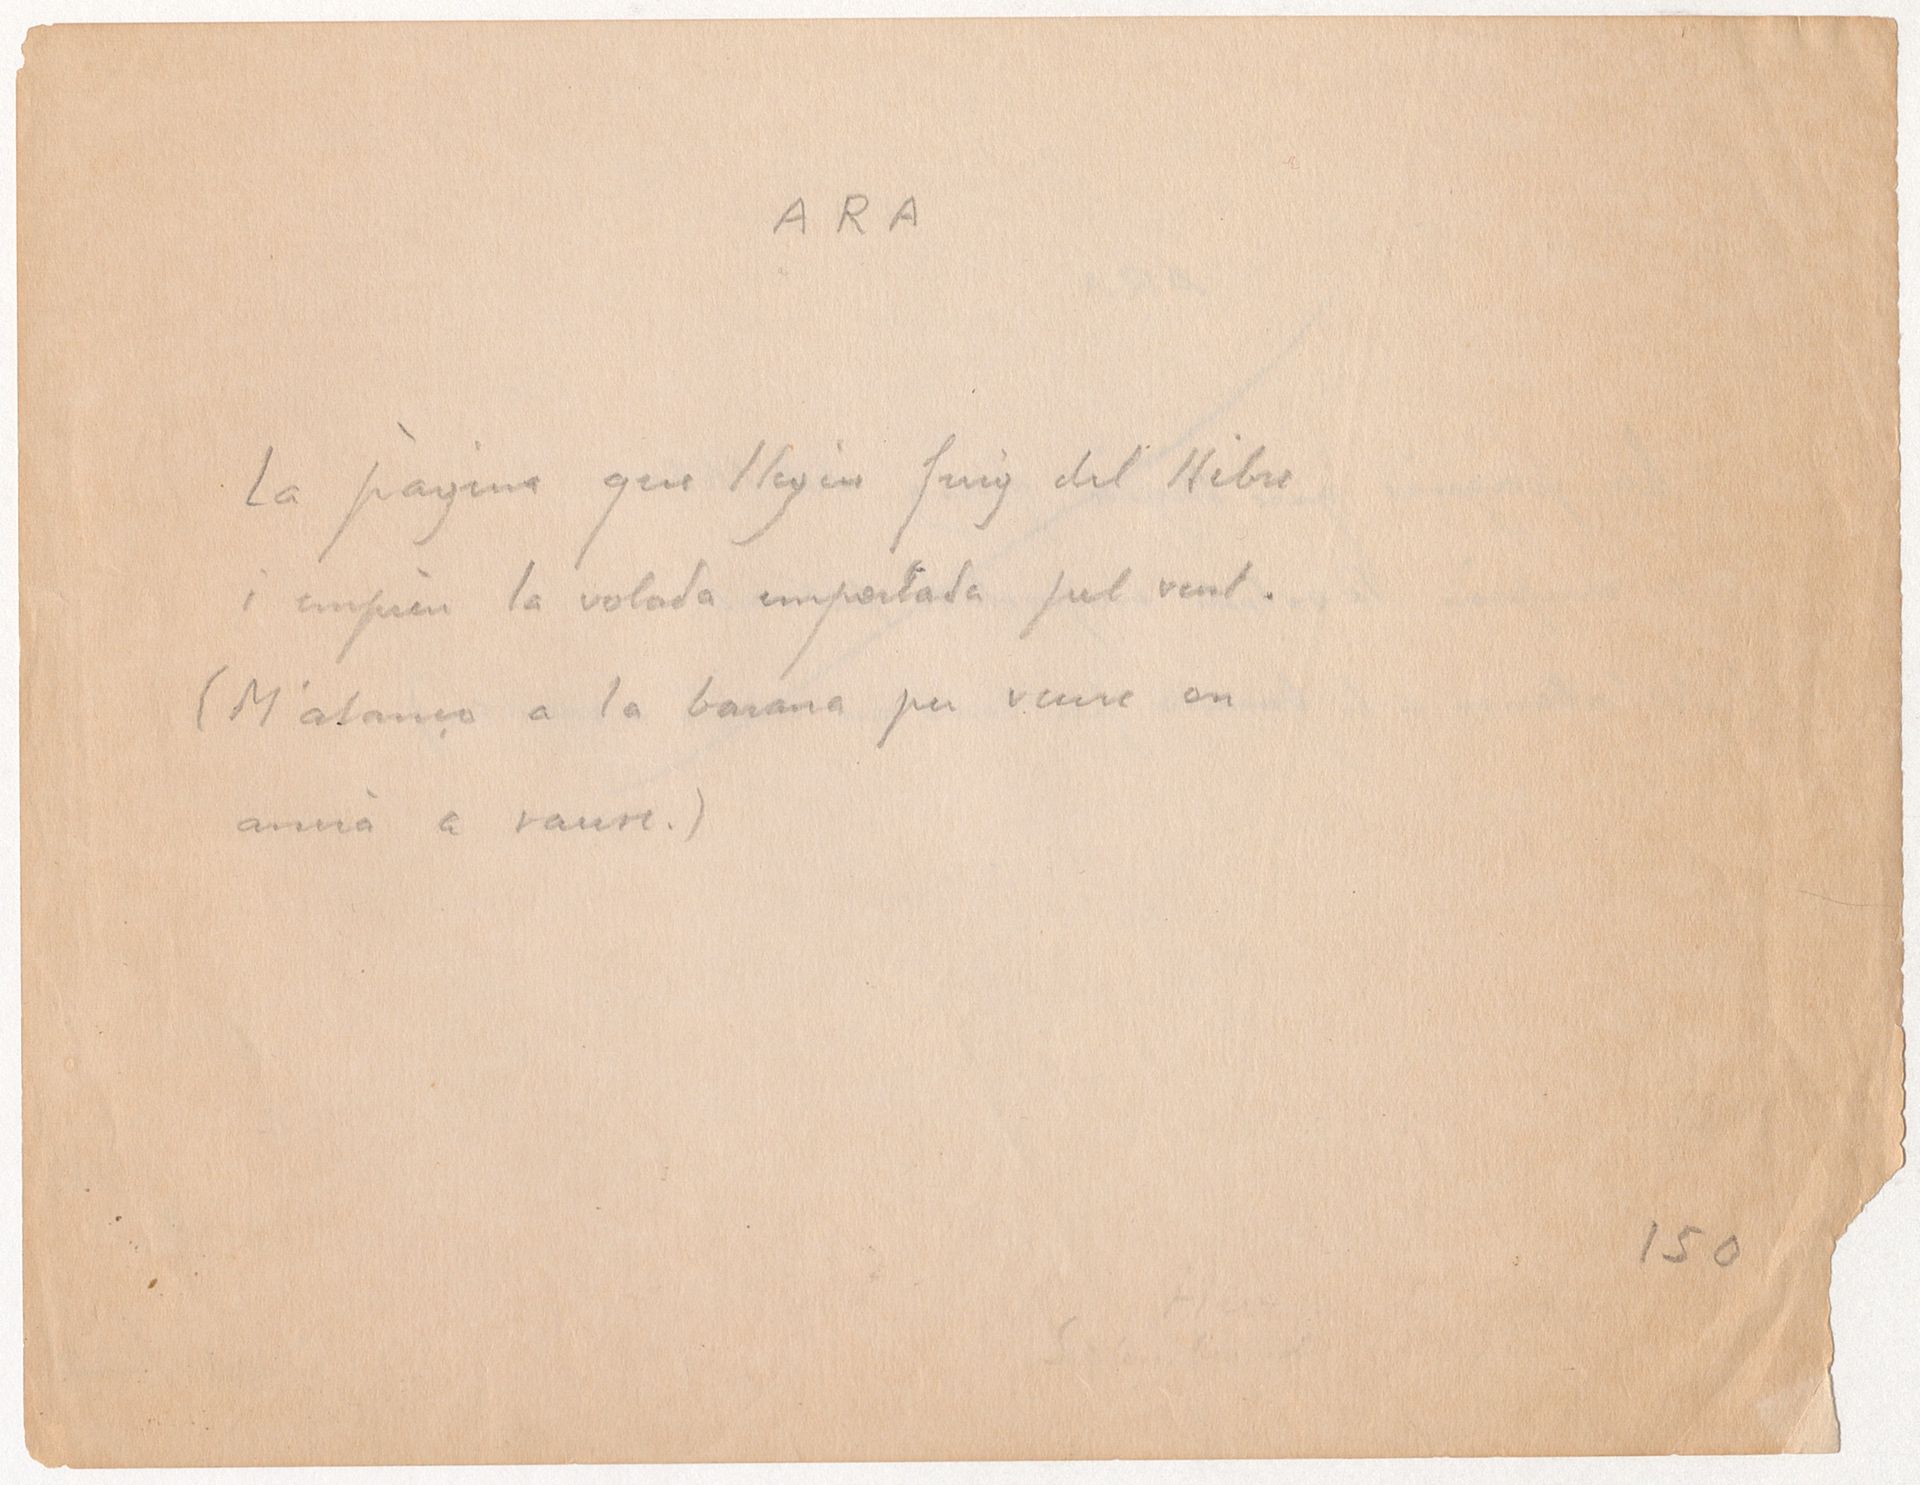 ARA
La pàgina que llegiu fuig del llibre
i emprèn la volada emportada pel vent.
(M'atanço a la barana per veure on
anirà a raure.)
150